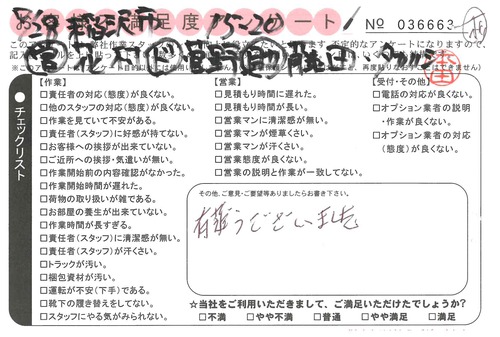 満足度
No 036663
このアンケート
チェックリスト
【作業】
□責任者の対応(態度)が良くない。
□他のスタッフの対応(態度)が良くない。
□作業を見ていて不安がある。
□責任者(スタッフ)に好感が持てない。
□お客様への挨拶が出来ていない。
□ご近所への挨拶・気遣いが無い。
□作業開始前の内容確認がなかった。
□作業開始時間が遅れた。
□荷物の取り扱いが雑である。
□お部屋の養生が出来ていない。
□作業時間が長すぎる。
□責任者(スタッフ)に清潔感が無い。
□責任者(スタッフ)が汗くさい。
□トラックが汚い。
□梱包資材が汚い。
□運転が不安(下手)である。
□靴下の履き替えをしてない。
□スタッフにやる気がみられない。
【営業】
□見積もり時間に遅れた。
□見積もり時間が長い。
□営業マンに清潔感が無い。
□営業マンが煙草くさい。
□営業マンが汗くさい。
□営業態度が良くない。
□営業の説明と作業が一致してない。
【受付・その他】
□電話の対応が良くない。
□オプション業者の説明
・作業が良くない。
□オプション業者の対応
(態度)が良くない。
その他、ご意見・ご要望等ありましたらお書き下さい。
有難うございました
☆当社をご利用いただきまして、ご満足いただけたでしょうか?
□不満 □やや不満 □普通 □やや満足 □満足